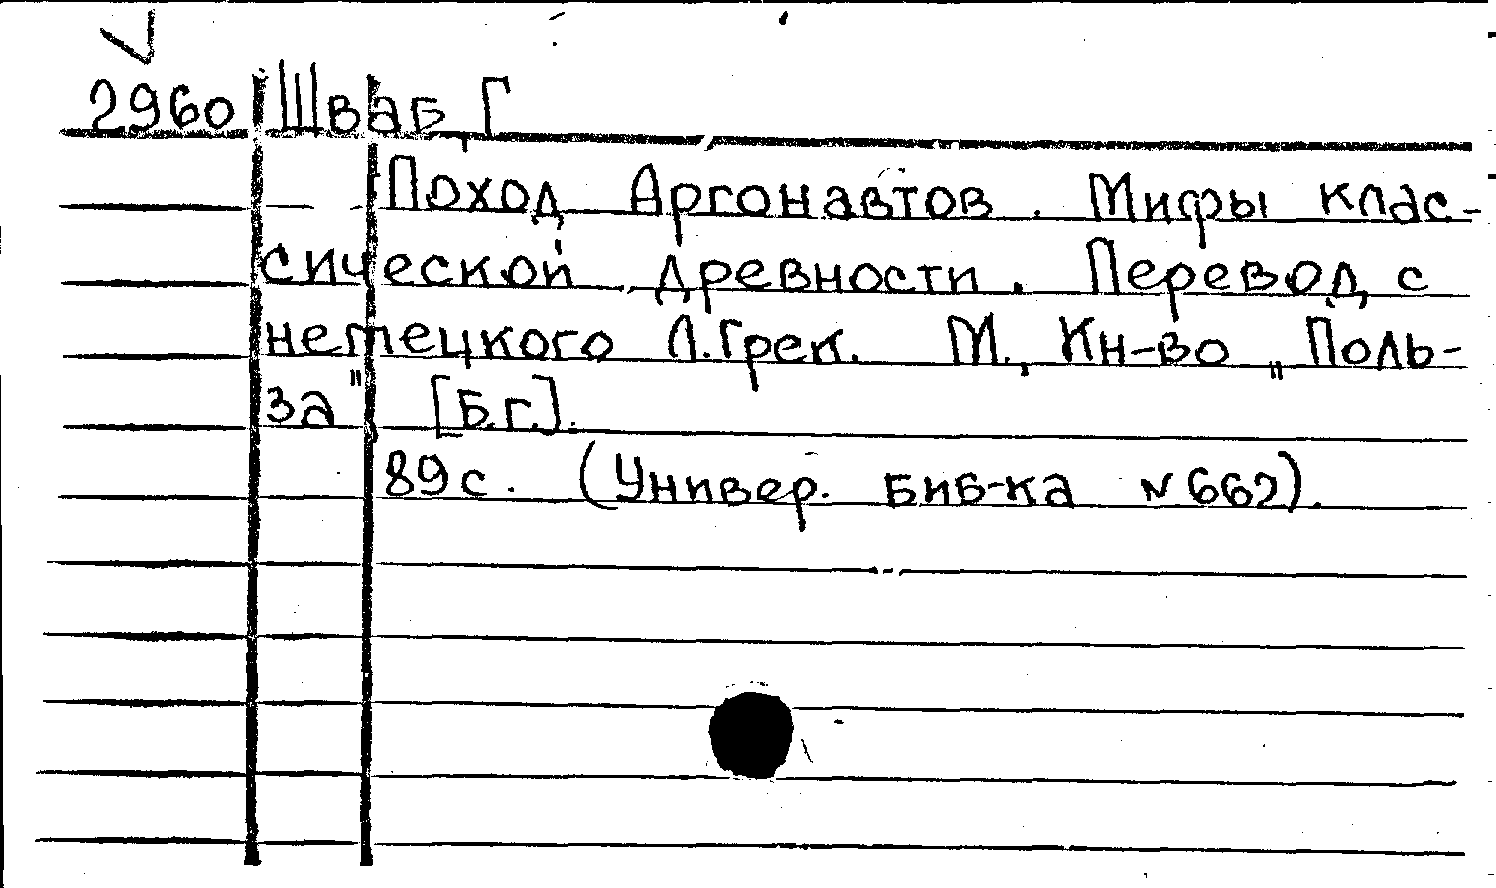 2960 Шваб, Г
Поход Аргонавтов. Мифы клас-
сической древности. Перевод с
немецкого Л. Грек. М., Кн-во „Поль-
за" [Б.г.].
89 с. (Универ. Биб-ка № 662).